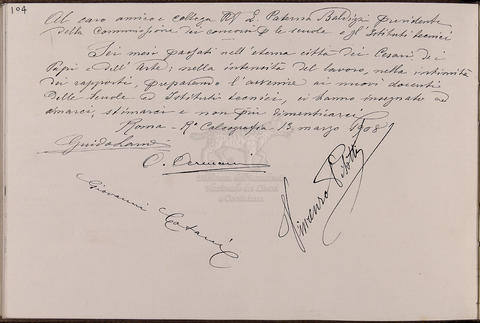 104
Al caro amico e collega Prof. L. Paterna Baldizzi presidente
della Commissione dei concorsi p le scuole e gl'Istituti tecnici
Sei mesi passati nell'eterna città dei Cesari, dei
Papi e dell'Arte; nella intensità del lavoro, nella intimità
dei rapporti, preparando l'avvenire ai nuovi docenti
delle scuole ed Istituti tecnici, ci hanno insegnato ad
amarci, stimarci e non più dimenticarci
Roma - Rª Calcografia - 13, marzo 1908
Guido
O.
Giovanni
Vincenzo